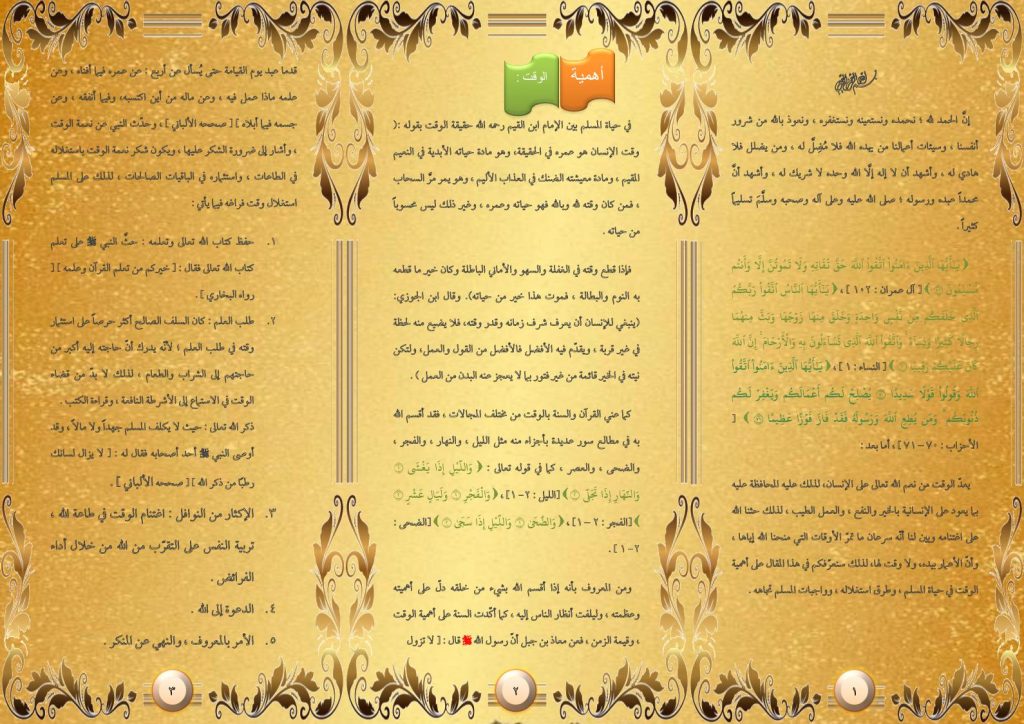 إنَّ الحمد لله ؛ نحمده ونستعينه ونستغفره ، ونعوذ بالله من شرور
أنفسنا ، وسيئات أعمالنا من يهده الله فلا مُضِلَّ له ، ومن يضلل فلا
هادي له ، وأشهد أن لا إله إلَّا الله وحده لا شريك له ، وأشهد أنَّ
محمداً عبده ورسوله ؛ صلى الله عليه وعلى آله وصحبه وسلَّمَ تسليماً
كثيراً .
﴿ يَٰٓأَيُّهَا ٱلَّذِينَ ءَامَنُوا۟ ٱتَّقُوا۟ ٱللَّهَ حَقَّ تُقَاتِهِۦ وَلَا تَمُوتُنَّ إِلَّا وَأَنتُم
مُّسْلِمُونَ ﴾ [ آل عمران : ١٠٢ ] ، ﴿ يَٰٓأَيُّهَا ٱلنَّاسُ ٱتَّقُوا۟ رَبَّكُمُ
ٱلَّذِى خَلَقَكُم مِّن نَّفْسٍ وَٰحِدَةٍ وَخَلَقَ مِنْهَا زَوْجَهَا وَبَثَّ مِنْهُمَا
رِجَالًا كَثِيرًا وَنِسَآءً ۚ وَٱتَّقُوا۟ ٱللَّهَ ٱلَّذِى تَسَآءَلُونَ بِهِۦ وَٱلْأَرْحَامَ ۚ إِنَّ ٱللَّهَ
كَانَ عَلَيْكُمْ رَقِيبًا ﴾ [ النساء : ١ ] ، ﴿ يَٰٓأَيُّهَا ٱلَّذِينَ ءَامَنُوا۟ ٱتَّقُوا۟
ٱللَّهَ وَقُولُوا۟ قَوْلًا سَدِيدًا ٧٠ يُصْلِحْ لَكُمْ أَعْمَٰلَكُمْ وَيَغْفِرْ لَكُمْ
ذُنُوبَكُمْ ۗ وَمَن يُطِعِ ٱللَّهَ وَرَسُولَهُۥ فَقَدْ فَازَ فَوْزًا عَظِيمًا ٧١ ﴾ [
الأحزاب : ٧٠ - ٧١ ] ، أما بعد :
يعدّ الوقت من نعم الله تعالى على الإنسان، لذلك عليه المحافظة عليه
بما يعود على الإنسانية بالخير والنفع ، والعمل الطيب ، لذلك حثنا الله
على اغتنامه وبين لنا أنّه سرعان ما تمرّ الأوقات التي منحنا الله إياها ،
وأنّ الأعمار بيده، ولا وقت لها، لذلك سنعرّفكم في هذا المقال على أهمية
الوقت في حياة المسلم ، وطرق استغلاله ، وواجبات المسلم تجاهه .
١
أهمية الوقت :
في حياة المسلم بين الإمام ابن القيم رحمه الله حقيقة الوقت بقوله :(
وقت الإنسان هو عمره في الحقيقة، وهو مادة حياته الأبدية في النعيم
المقيم ، ومادة معيشته الضنك في العذاب الأليم ، وهو يمر مرَّ السحاب
، فمن كان وقته لله وبالله فهو حياته وعمره ، وغير ذلك ليس محسوباً
من حياته .
فإذا قطع وقته في الغفلة والسهو والأماني الباطلة وكان خير ما قطعه
به النوم والبطالة ، فموت هذا خير من حياته). وقال ابن الجوزي:
(ينبغي للإنسان أن يعرف شرف زمانه وقدر وقته، فلا يضيع منه لحظة
في غير قربة ، ويقدّم فيه الأفضل فالأفضل من القول والعمل، ولتكن
نيته في الخير قائمة من غير فتور بما لا يعجز عنه البدن من العمل ) .
كما عني القرآن والسنة بالوقت من مختلف المجالات ، فقد أقسم الله
به في مطالع سور عديدة بأجزاء منه مثل الليل ، والنهار ، والفجر ،
والضحى ، والعصر ، كما في قوله تعالى : ﴿ وَٱلَّيْلِ إِذَا يَغْشَىٰ ١
وَٱلنَّهَارِ إِذَا تَجَلَّىٰ ٢ ﴾ [الليل : ٢-١] ، ﴿ وَٱلْفَجْرِ ١ وَلَيَالٍ عَشْرٍ ٢
﴾ [الفجر : ٢-١] ، ﴿ وَٱلضُّحَىٰ ١ وَٱلَّيْلِ إِذَا سَجَىٰ ٢ ﴾ [الضحى :
٢-١ ] .
ومن المعروف بأنه إذا أقسم الله بشيء من خلقه دلّ على أهميته
وعظمته ، وليلفت أنظار الناس إليه ، كما أكّدت السنة على أهمية الوقت
، وقيمة الزمن ، فعن معاذ بن جبل أنّ رسول الله ﷺ قال : [ لا تزول
٢
قدما عبد يوم القيامة حتى يُسأل عن أربع : عن عمره فيما أفناه ، وعن
علمه ماذا عمل فيه ، وعن ماله من أين اكتسبه، وفيما أنفقه ، وعن
جسمه فيما أبلاه ] [ صححه الألباني ] ، وحدّث النبي عن نعمة الوقت
، وأشار إلى ضرورة الشكر عليها ، ويكون شكر نعمة الوقت باستغلاله
في الطاعات ، واستثماره في الباقيات الصالحات ، لذلك على المسلم
استغلال وقت فراغه فيما يأتي :
١. حفظ كتاب الله تعالى وتعلمه : حثَّ النبي ﷺ على تعلم
كتاب الله تعالى فقال : [ خيركم من تعلم القرآن وعلمه ] [
رواه البخاري ] .
٢. طلب العلم : كان السلف الصالح أكثر حرصاً على استثمار
وقته في طلب العلم ؛ لأنّه يدرك أنّ حاجته إليه أكبر من
حاجتهم إلى الشراب والطعام ، لذلك لا بدّ من قضاء
الوقت في الاستماع إلى الأشرطة النافعة ، وقراءة الكتب .
ذكر الله تعالى : حيث لا يكلف المسلم جهداً ولا مالاً ، وقد
أوصى النبي ﷺ أحد أصحابه فقال له : [ لا يزال لسانك
رطبًا من ذكر الله ] [ صححه الألباني ] .
٣. الإكثار من النوافل : اغتنام الوقت في طاعة الله ،
تربية النفس على التقرّب من الله من خلال أداء
الفرائض .
٤. الدعوة إلى الله .
٥. الأمر بالمعروف ، والنهي عن المنكر .
٣